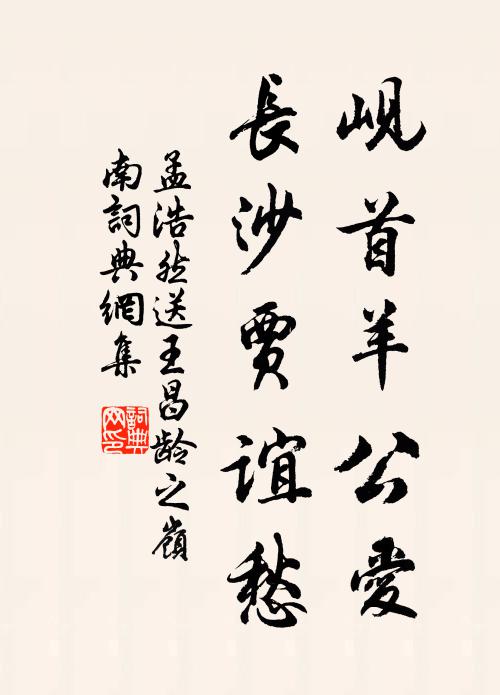 峴首羊公愛
長沙賈誼愁
孟浩然送王昌齡之嶺
南詞典網集
詞典网印